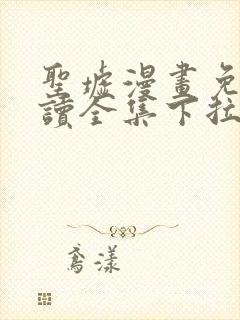 聖墟漫畫免
讀全集下拉
鳶漾